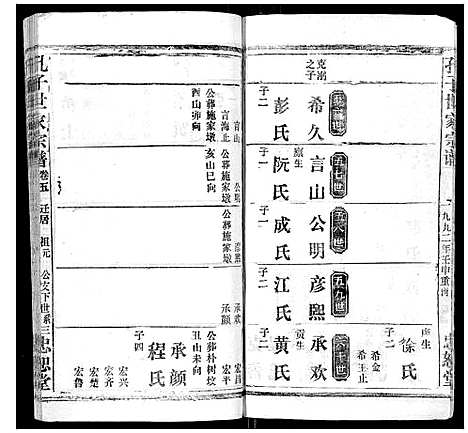 孔子世家宗譜
一九九二年壬申重修
忠恕堂
庠生
徐氏
子二
希金
希玉止
五十六世
五七世
五八世
五九世
六十世
克溺之子
希久
彭氏
子二
庠生
言山
阮氏
子一
公明
成氏
子一
彦熙
江氏
子二
承欢
贡生
黄氏
子二
言山
言海止
公葬施家墩
酉山卯向
公明
公葬施家墩
亥山巳向
彦熙
公葬施家墩
承欢
承颜
宏昌
宏平
公葬朴树坟
丑山未向
承颜
程氏
子四
宏兴
宏齐
宏楚
宏鲁
孔子世家宗譜
卷五
迁居
祖元
公支下世系三
忠恕堂